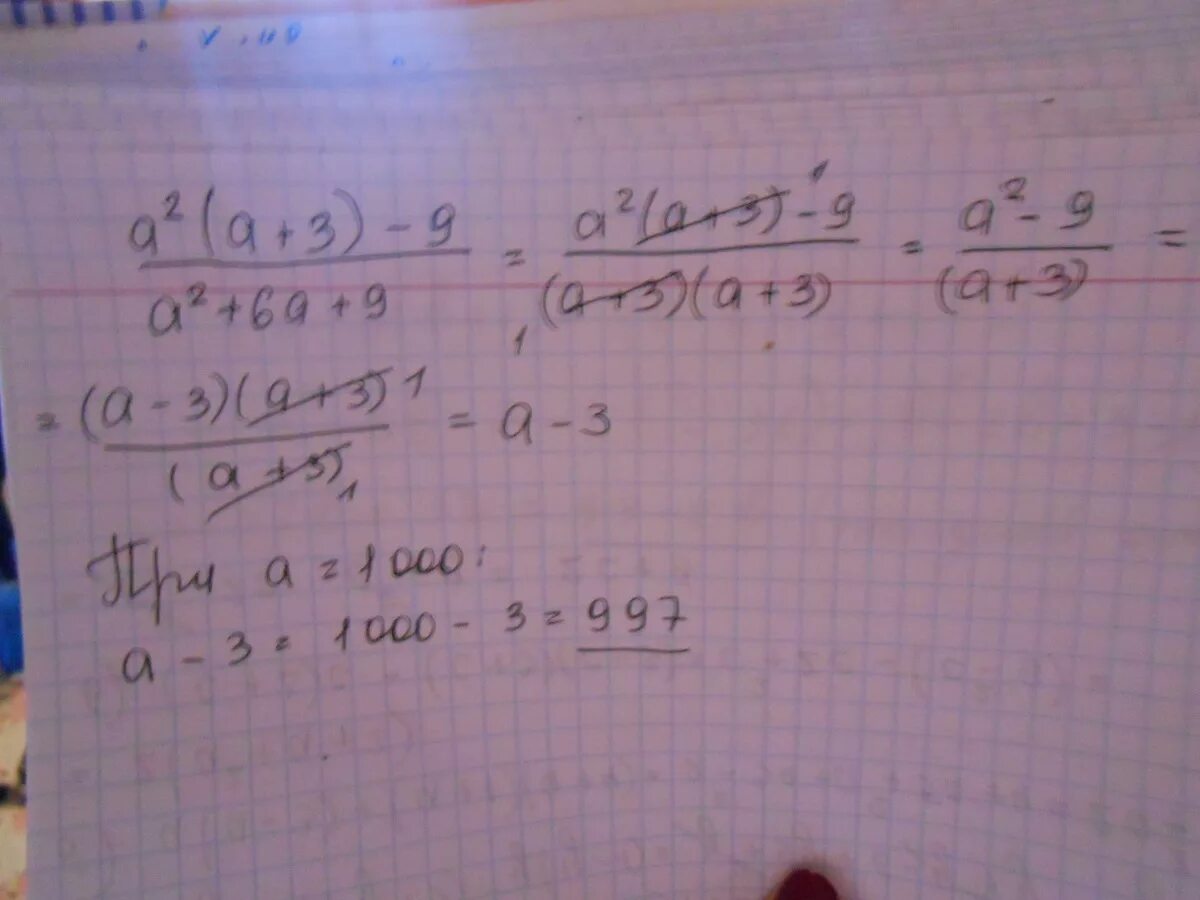 a²(a+3)-9 / a²+6a+9 = a²(a+3)-9 / (a+3)(a+3) = a²-9 / (a+3) =
= (a-3)(a+3) / (a+3) = a-3
При a = 1000:
a-3 = 1000-3 = 997